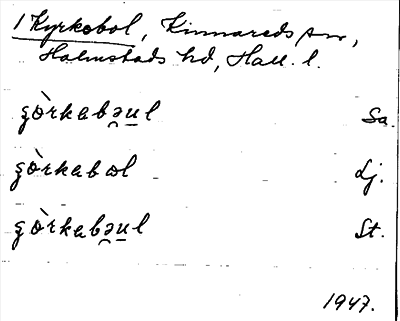 1 Kyrkobol, Kinnareds sn,
Halmstads hd, Hall. l.
ʂòrkabə̯u̲l Sa.
ʂòrkabɷl Lj.
ʂòrkabə̯u̲l St.
1947.